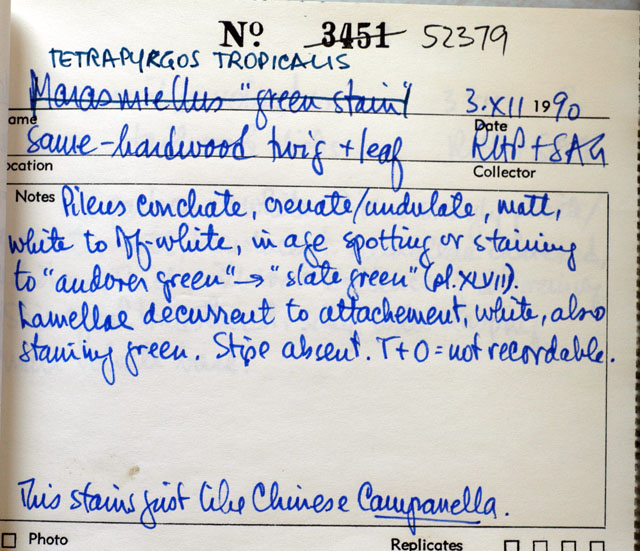 Nº 3451 52379
TETRAPYRGOS TROPICALIS
Marasmiellus "green stain" 3.XII 1990
ame Date
Same-hardwood twig + leaf RHP + SAG
ocation Collector
Notes Pileus conchate, crenate/undulate, matt,
white to off-white, in age spotting or staining
to "andover green" → "slate green" (pl.XLVII).
Lamellae decurrent to attachement, white, also
staining green. Stipe absent. T+O = not recordable.
This stains just like Chinese Campanella.
Photo Replicates